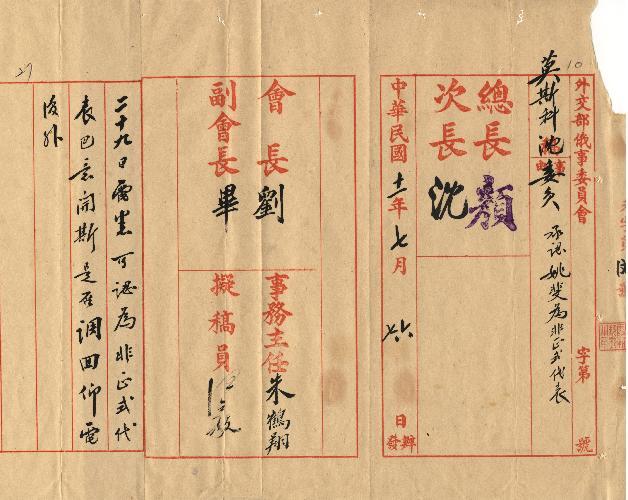 10
外交部俄事委員會 字第 號
莫斯科沈委員 承認姚斐為非正式代表
總長 顏
次長 沈
中華民國十一年七月 廿六 日 辦發
會長 劉
副會長 畢
事務主任 朱鶴翔
擬稿員
27
二十九日電悉可認為非正式代
表巴意開斯是否調回仰電
復外